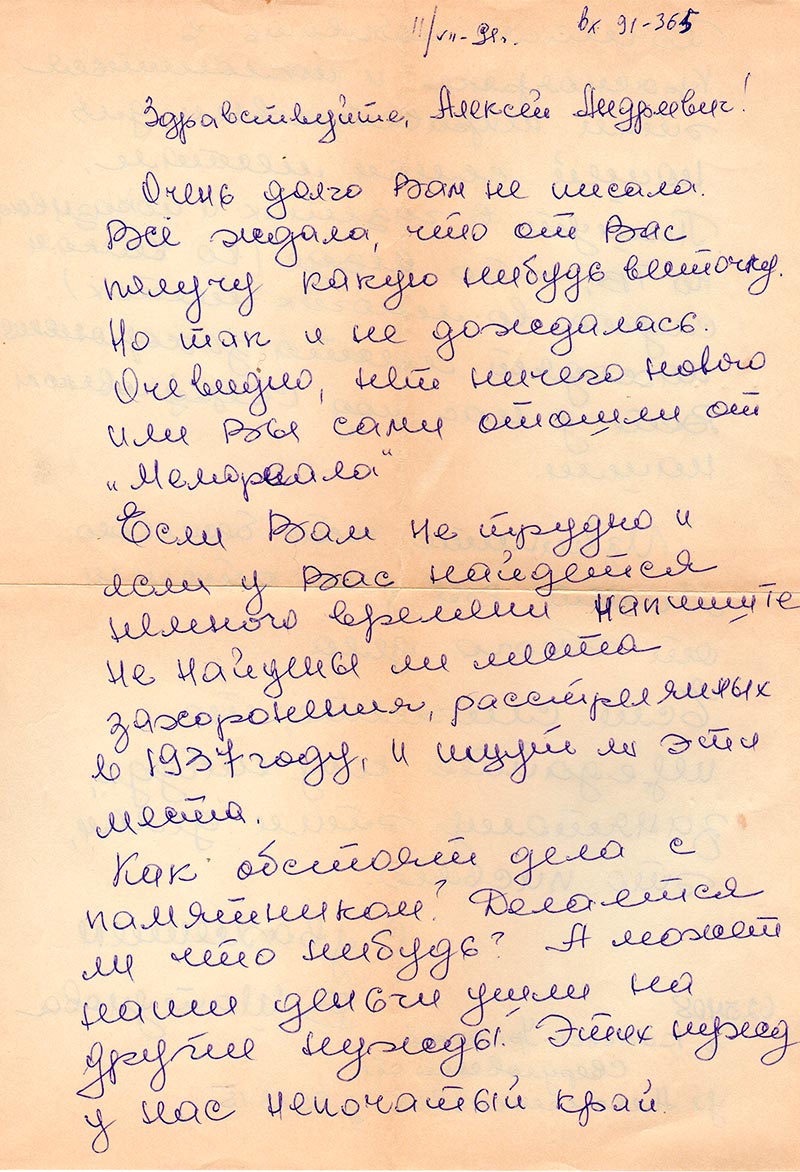 11/VII-91г. вх 91-365
Здравствуйте, Алексей Андреевич!
Очень долго Вам не писала.
Все ждала, что от Вас
получу какую нибудь весточку.
Но так и не дождалась.
Очевидно, нет ничего нового
или Вы сами отошли от
„Мемориала“
Если Вам не трудно и
если у Вас найдется
немного времени напишите
не найдены ли места
захоронения, расстрелянных
в 1937 году, и ищут ли эти
места.
Как обстоят дела с
памятником? Делается
ли что нибудь? А может
наши деньги ушли на
другие нужды! Этих нужд
у нас непочатый край.